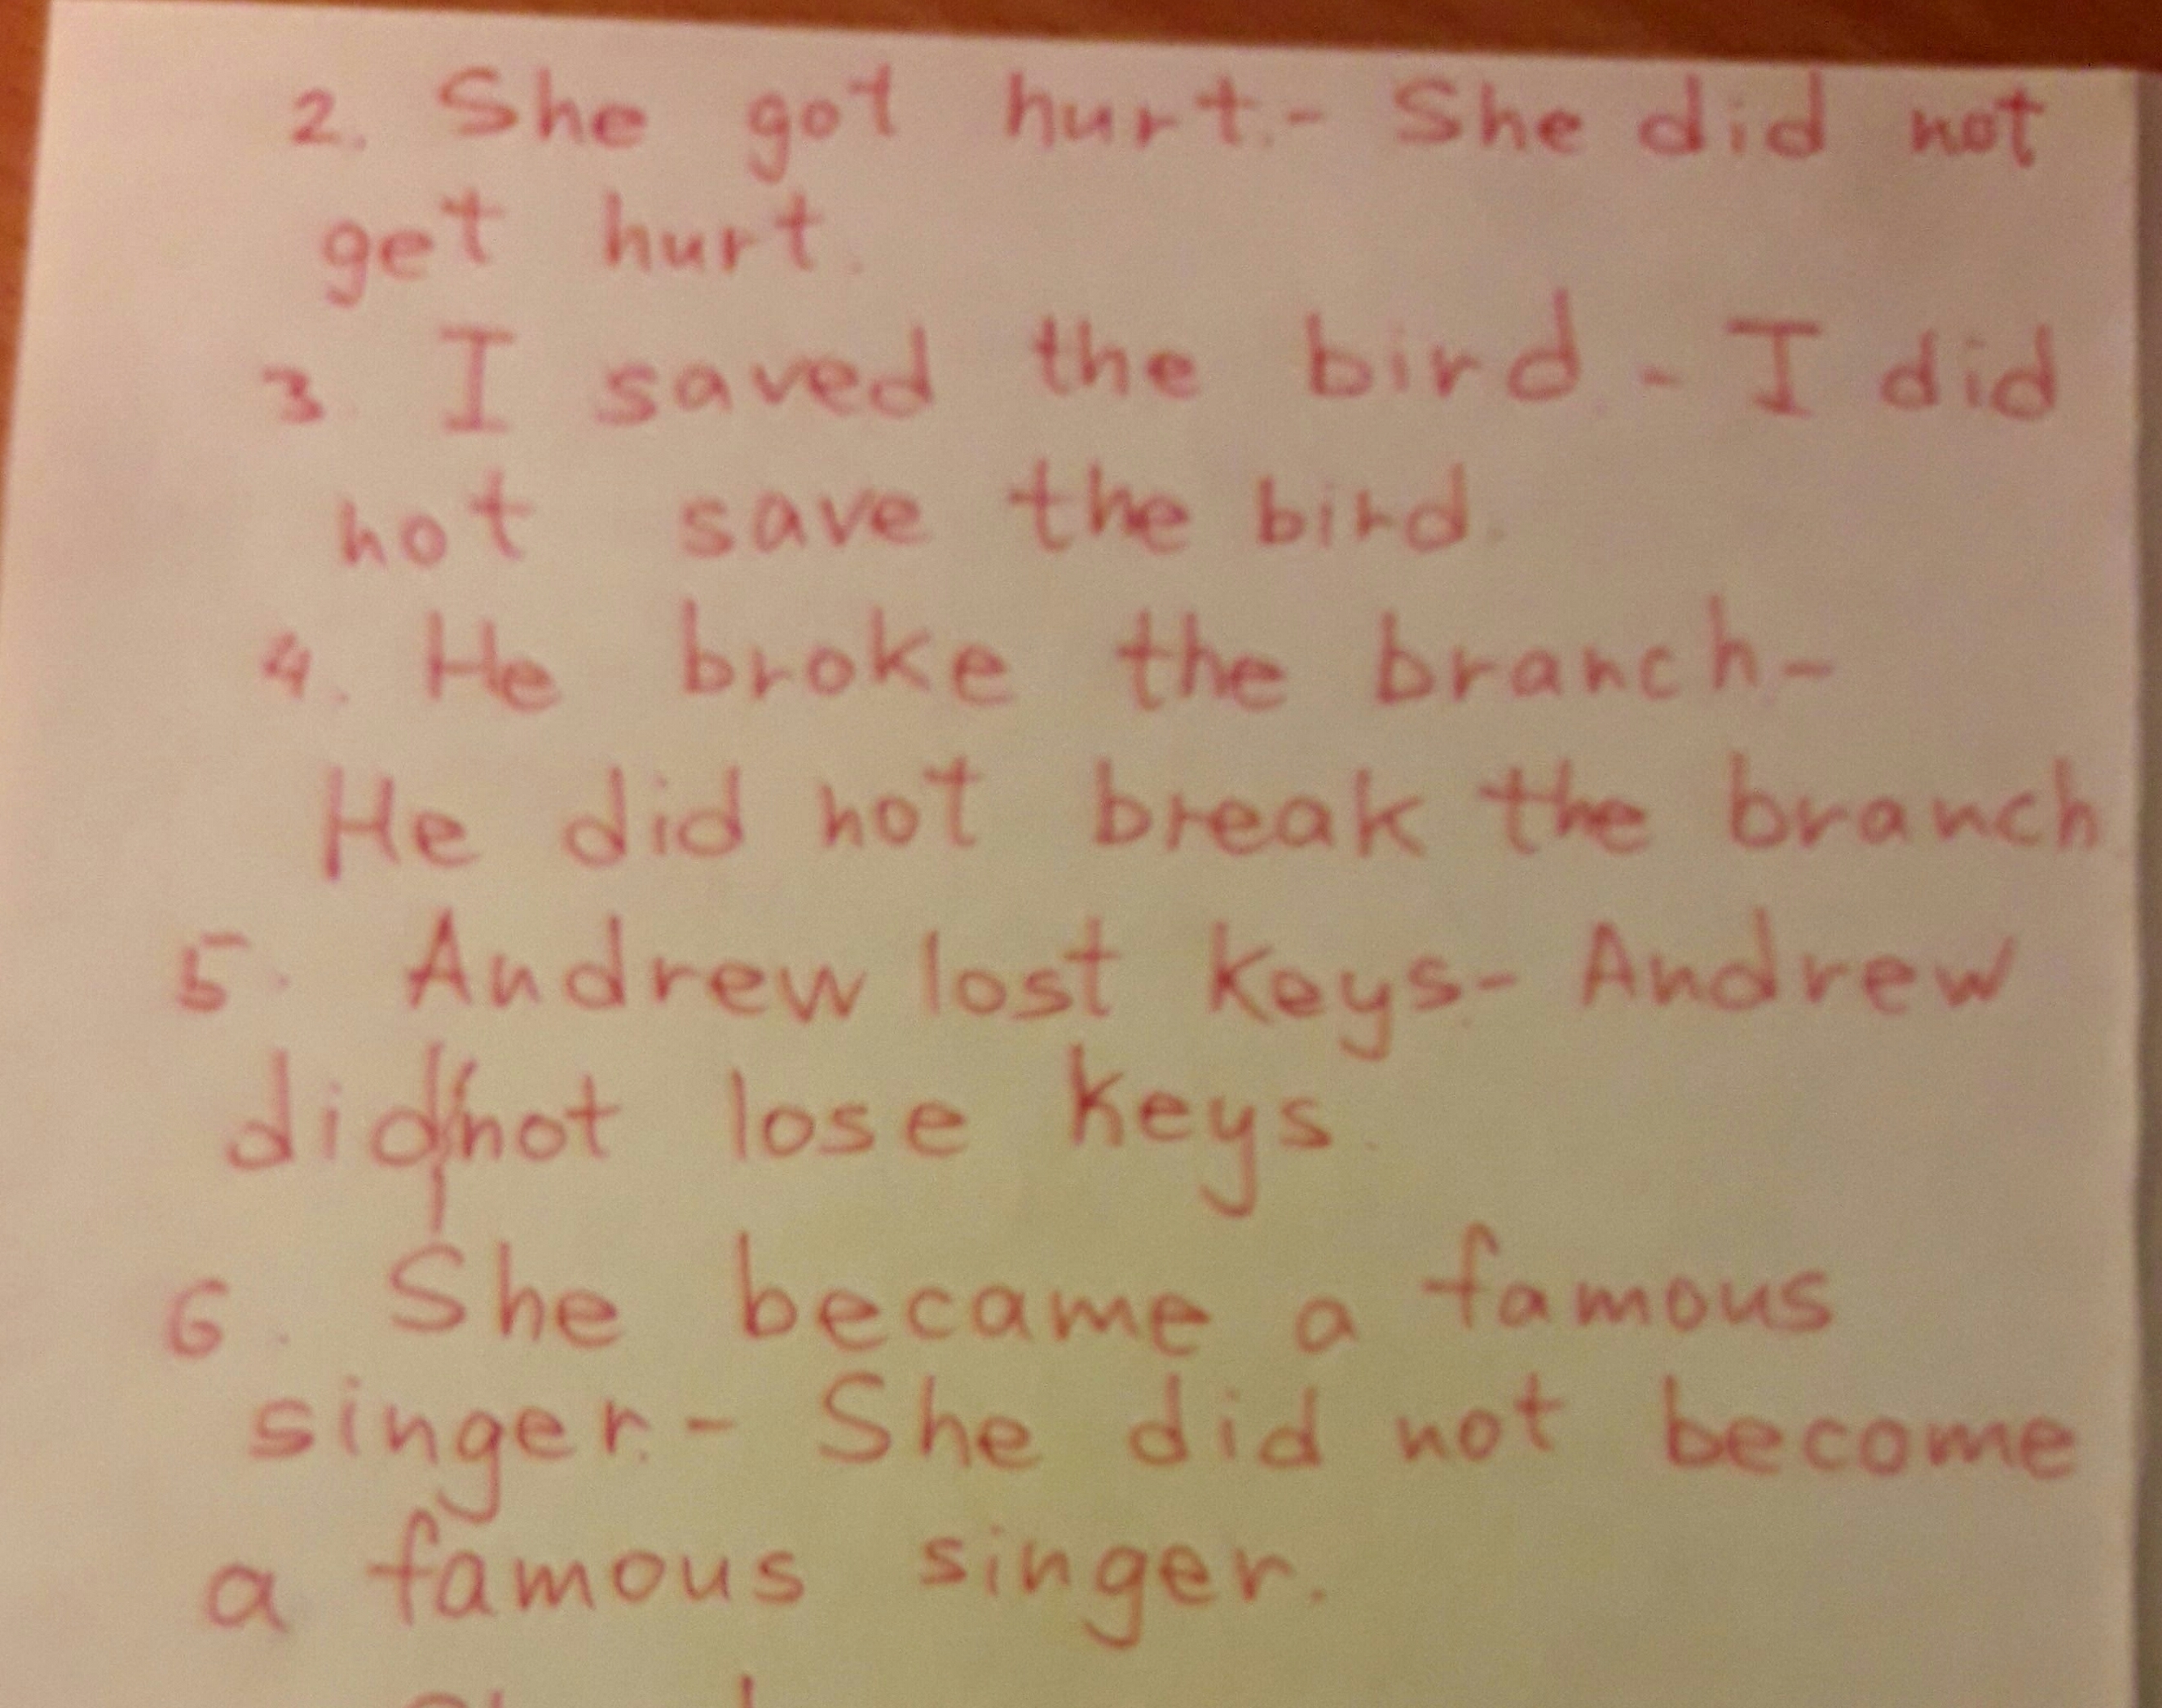 2. She got hurt.- She did not
get hurt.
3. I saved the bird.- I did
not save the bird.
4. He broke the branch-
He did not break the branch
5. Andrew lost keys- Andrew
did/not lose keys.
6. She became a famous
singer.- She did not become
a famous singer.